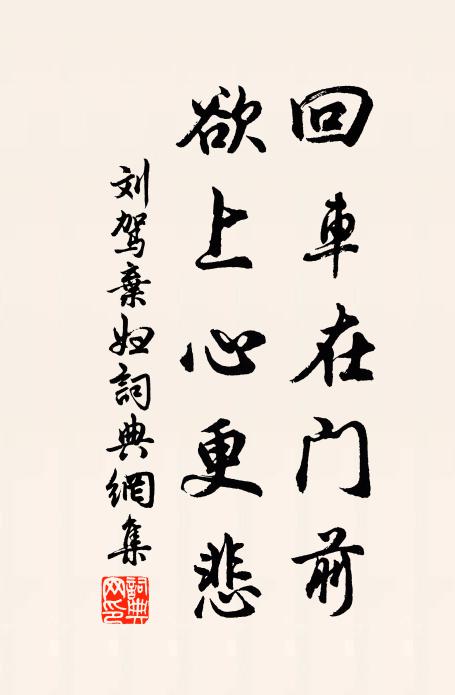 回車在门前
欲上心更悲
刘驾棄妇詞典網集
詞典網印